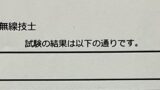 無線技士
試験の結果は以下の通りです。